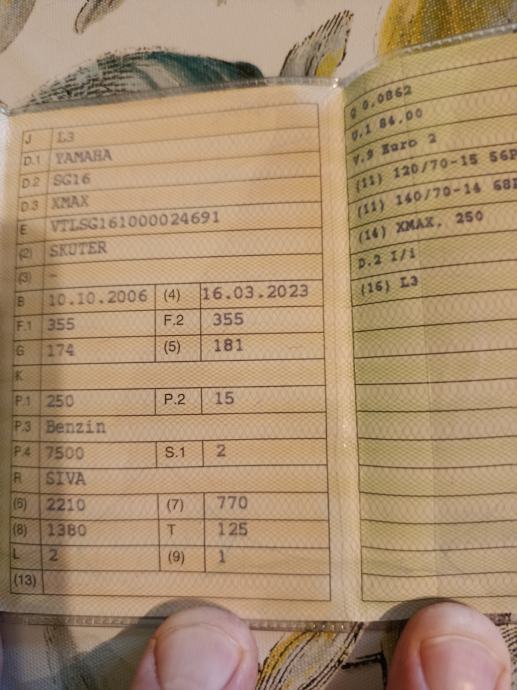 J L3
D.1 YAMAHA
D.2 SG16
D.3 XMAX
E VTLSG161000024691
(2) SKUTER
(3) -
B 10.10.2006 (4) 16.03.2023
F.1 355 F.2 355
G 174 (5) 181
K
P.1 250 P.2 15
P.3 Benzin
P.4 7500 S.1 2
R SIVA
(6) 2210 (7) 770
(8) 1380 T 125
L 2 (9) 1
(13)
Q 0.0862
U.1 84.00
V.9 Euro 2
(11) 120/70-15 56P
(11) 140/70-14 68P
(14) XMAX, 250
D.2 I/i
(16) L3